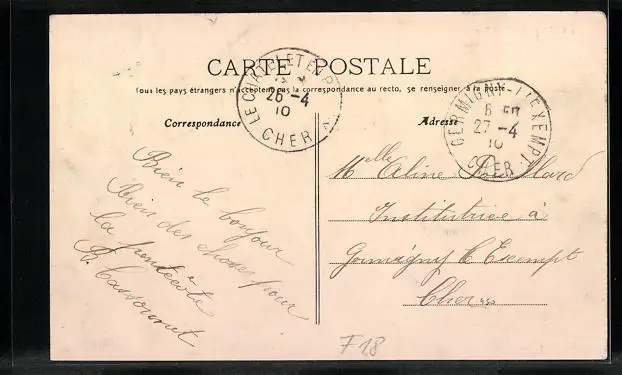 CARTE POSTALE
Tous les pays étrangers n'acceptent pas la correspondance au recto, se renseigner à la poste
Correspondance
Adresse
LE CHATELET EN
26 -4
10
CHER
GERMIGNY-L'EXEMPT
6
27 -4
10
CHER
Bien le bonjour
Bien des choses pour
la
Melle Aline
Institutrice à
Germigny l'Exempt
Cher
F18